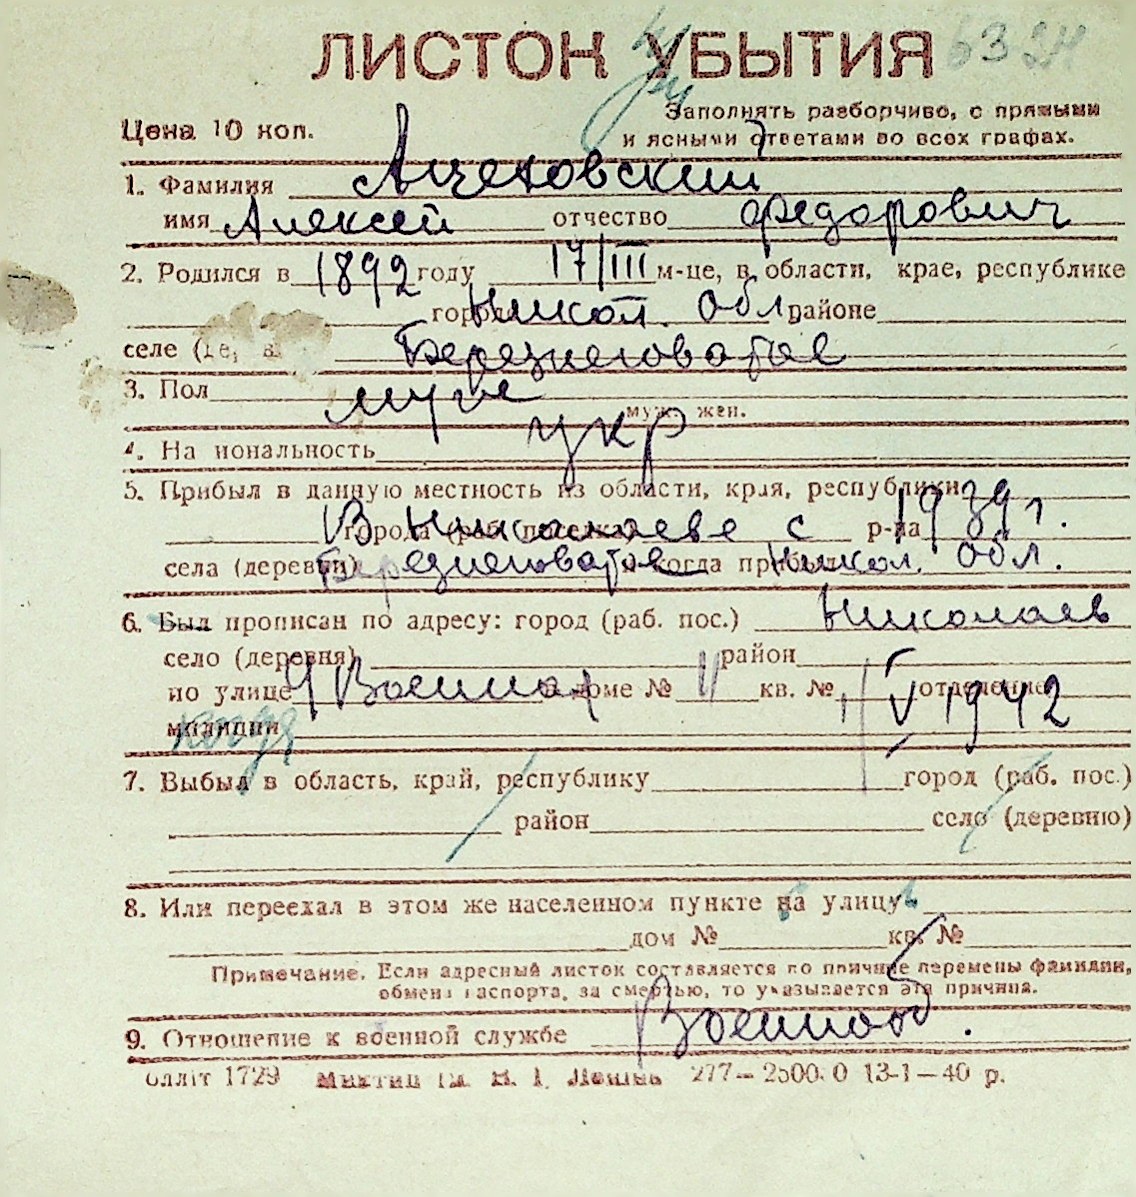 ЛИСТОК УБЫТИЯ
Цена 10 коп.
Заполнять разборчиво, с прямыми
и ясными ответами во всех графах.
1. Фамилия Ацеховский
имя Алексей отчество Федорович
2. Родился в 1892 году 17/III м-це, в области, крае, республике
Никол. Обл. районе
селе Березнеговатое
3. Пол муж
муж. жен.
4. Национальность укр
5. Прибыл в данную местность из области, края, республики
В Николаеве с р-на 1939 г.
села (деревни) Березнеговатое Никол. Обл.
6. Был прописан по адресу: город (раб. пос.) Николаев
село (деревня) район
по улице 9 Военная доме № 11 кв. № отделение
милиции когда 11 V 1942
7. Выбыл в область, край, республику город (раб. пос.)
район село (деревню)
8. Или переехал в этом же населенном пункте на улицу
дом № кв. №
Примечание. Если адресный листок составляется по причине перемены фамилии,
обмена паспорта, за смертью, то указывается эта причина.
9. Отношение к военной службе Военнооб.
1729 277—2500.0 13-1—40 р.